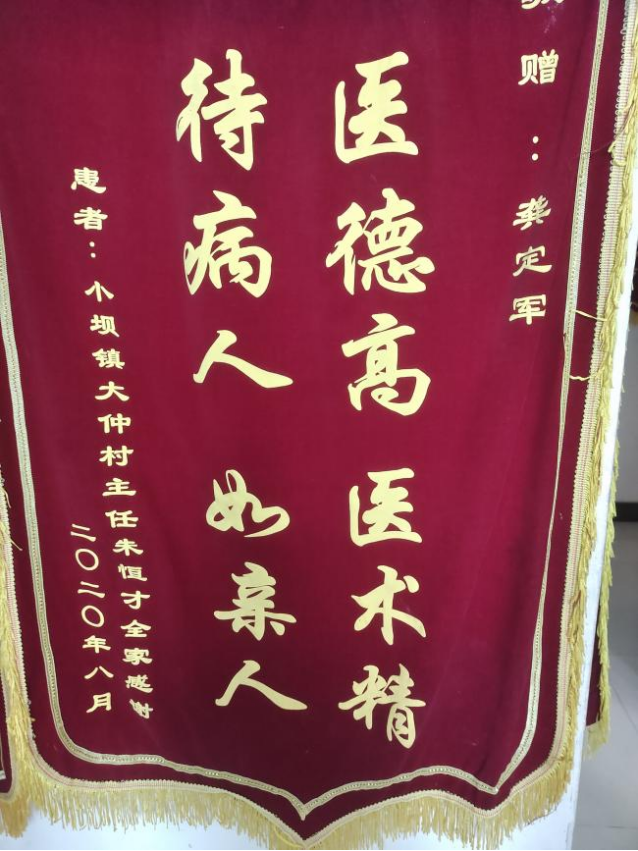 敬赠：龚定军
医德高 医术精
待病人 如亲人
患者：小坝镇大仲村主任朱恒才全家感谢
二〇二〇年八月